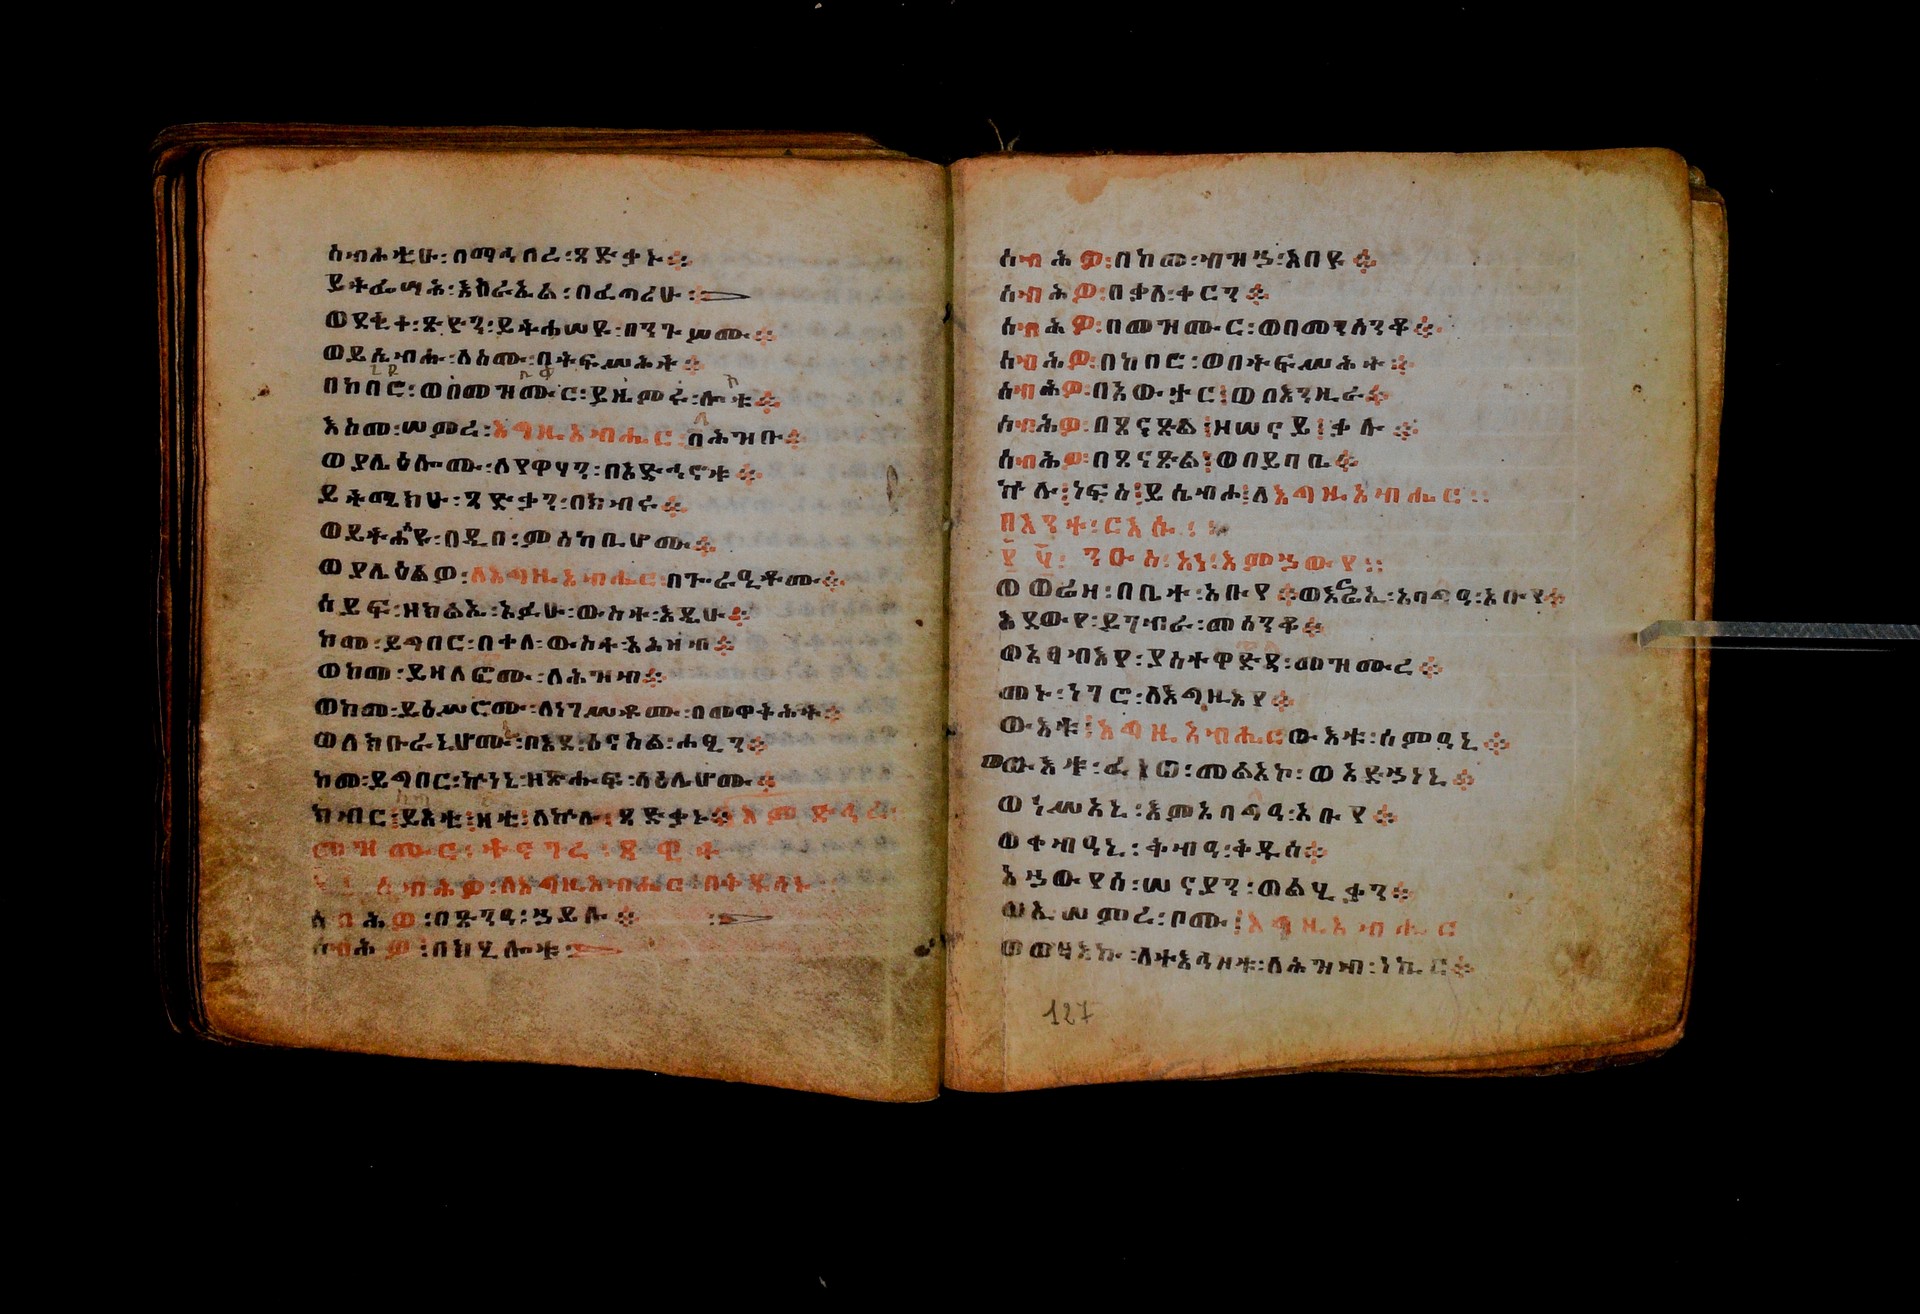 ስብሐቲሁ፡በማኅበረ፡ጻድቃኑ።
ይትፌሣሕ፡እስራኤል፡በፈጣሪሁ፡
ወደቂቀ፡ጽዮን፡ይትሐሠዩ፡በንጉሦሙ።
ወይሴብሑ፡ለስሙ፡በትፍሥሕት።
በከበሮ፡ወበመዝሙር፡ይዜምሩ፡ሎቱ።
እስመ፡ሠምረ፡እግዚአብሔር፡በሕዝቡ።
ወያሌዕሎሙ፡ለየዋሃን፡በአድኅኖቱ።
ይትሜክሁ፡ጻድቃን፡በክብሩ።
ወይትሐሠዩ፡በዲበ፡ምስካቢሆሙ።
ወያሌዕልዎ፡ለእግዚአብሔር፡በጉራዒቶሙ።
ሰይፍ፡ዘክልኤ፡አፉሁ፡ውስተ፡እዲሁ።
ከመ፡ይግበር፡በቀለ፡ውስተ፡አሕዛብ።
ወከመ፡ይዛለፎሙ፡ለሕዝብ።
ወከመ፡ይዕሥሮሙ፡ለነገሥቶሙ፡በመዋቅሕት።
ወለክቡራኒሆሙ፡በእደ፡ሰናስል፡ሐፂን።
ከመ፡ይግበር፡ኵነኔ፡ዘጽሑፍ፡ላዕሌሆሙ።
ክብር፡ይእቲ፡ዛቲ፡ለኵሉ፡ጻድቃኑ።
ሰብሕዎ፡ለእግዚአብሔር፡በቅዱሳኑ
ሰብሕዎ፡በጽንዓ፡ኃይሉ።
ሰብሕዎ፡በክሂሎቱ፡
ሰብሕዎ፡በከመ፡ብዝኃ፡ዕበዩ።
ሰብሕዎ፡በቃለ፡ቀርን።
ሰብሕዎ፡በመዝሙር፡ወበመሰንቆ።
ሰብሕዎ፡በከበሮ፡ወበትፍሥሕት።
ሰብሕዎ፡በአውታር፡ወበእንዚራ።
ሰብሕዎ፡በጸናጽል፡ዘሠናይ፡ቃሉ።
ሰብሕዎ፡በጸናጽል፡ወበይባቤ።
ኵሉ፡ነፍስ፡ይሴብሖ፡ለእግዚአብሔር።
በእንተ፡ርእሱ፡
ንዑስ፡አነ፡እምኃውየ።
ወወሬዛ፡በቤተ፡አቡየ።ወእርዒ፡አባግዓ፡አቡየ።
እደውየ፡ይገብራ፡መሰንቆ።
ወአፃብእየ፡ያስተዋድዳ፡መዝሙረ።
መኑ፡ነገሮ፡ለእግዚእየ።
ውእቱ፡እግዚአብሔር፡ውእቱ፡ሰምዓኒ።
ውእቱ፡ፈነወ፡መልአኮ፡ወአድኃነኒ።
ወነሥአኒ፡እምአባግዓ፡አቡየ።
ወቀብዓኒ፡ቅብዓ፡ቅዱሰ።
አኃውየሰ፡ሠናያን፡ወልሂቃን።
ወኢሠምረ፡ቦሙ፡እግዚአብሔር
ወወፃእኩ፡ለተአኅዞቱ፡ለሕዝብ፡ነኪር።
127